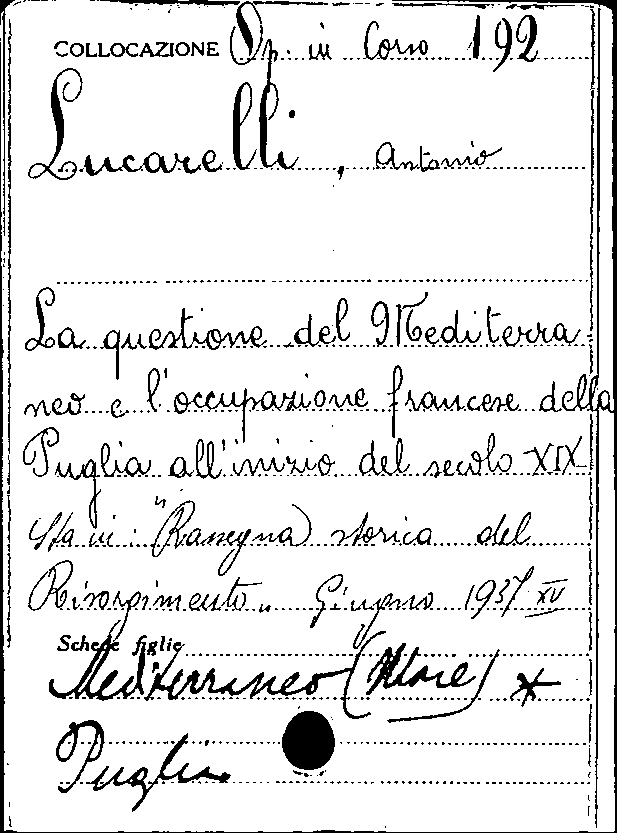 COLLOCAZIONE Op. in Corso 192
Lucarelli, Antonio
La questione del Mediterra
neo e l'occupazione francese della
Puglia all'inizio del secolo XIX
Sta in: "Rassegna storica del
Risorgimento" Giugno 1937 XV
Schede figlie
Mediterraneo (Mare) *
Puglia